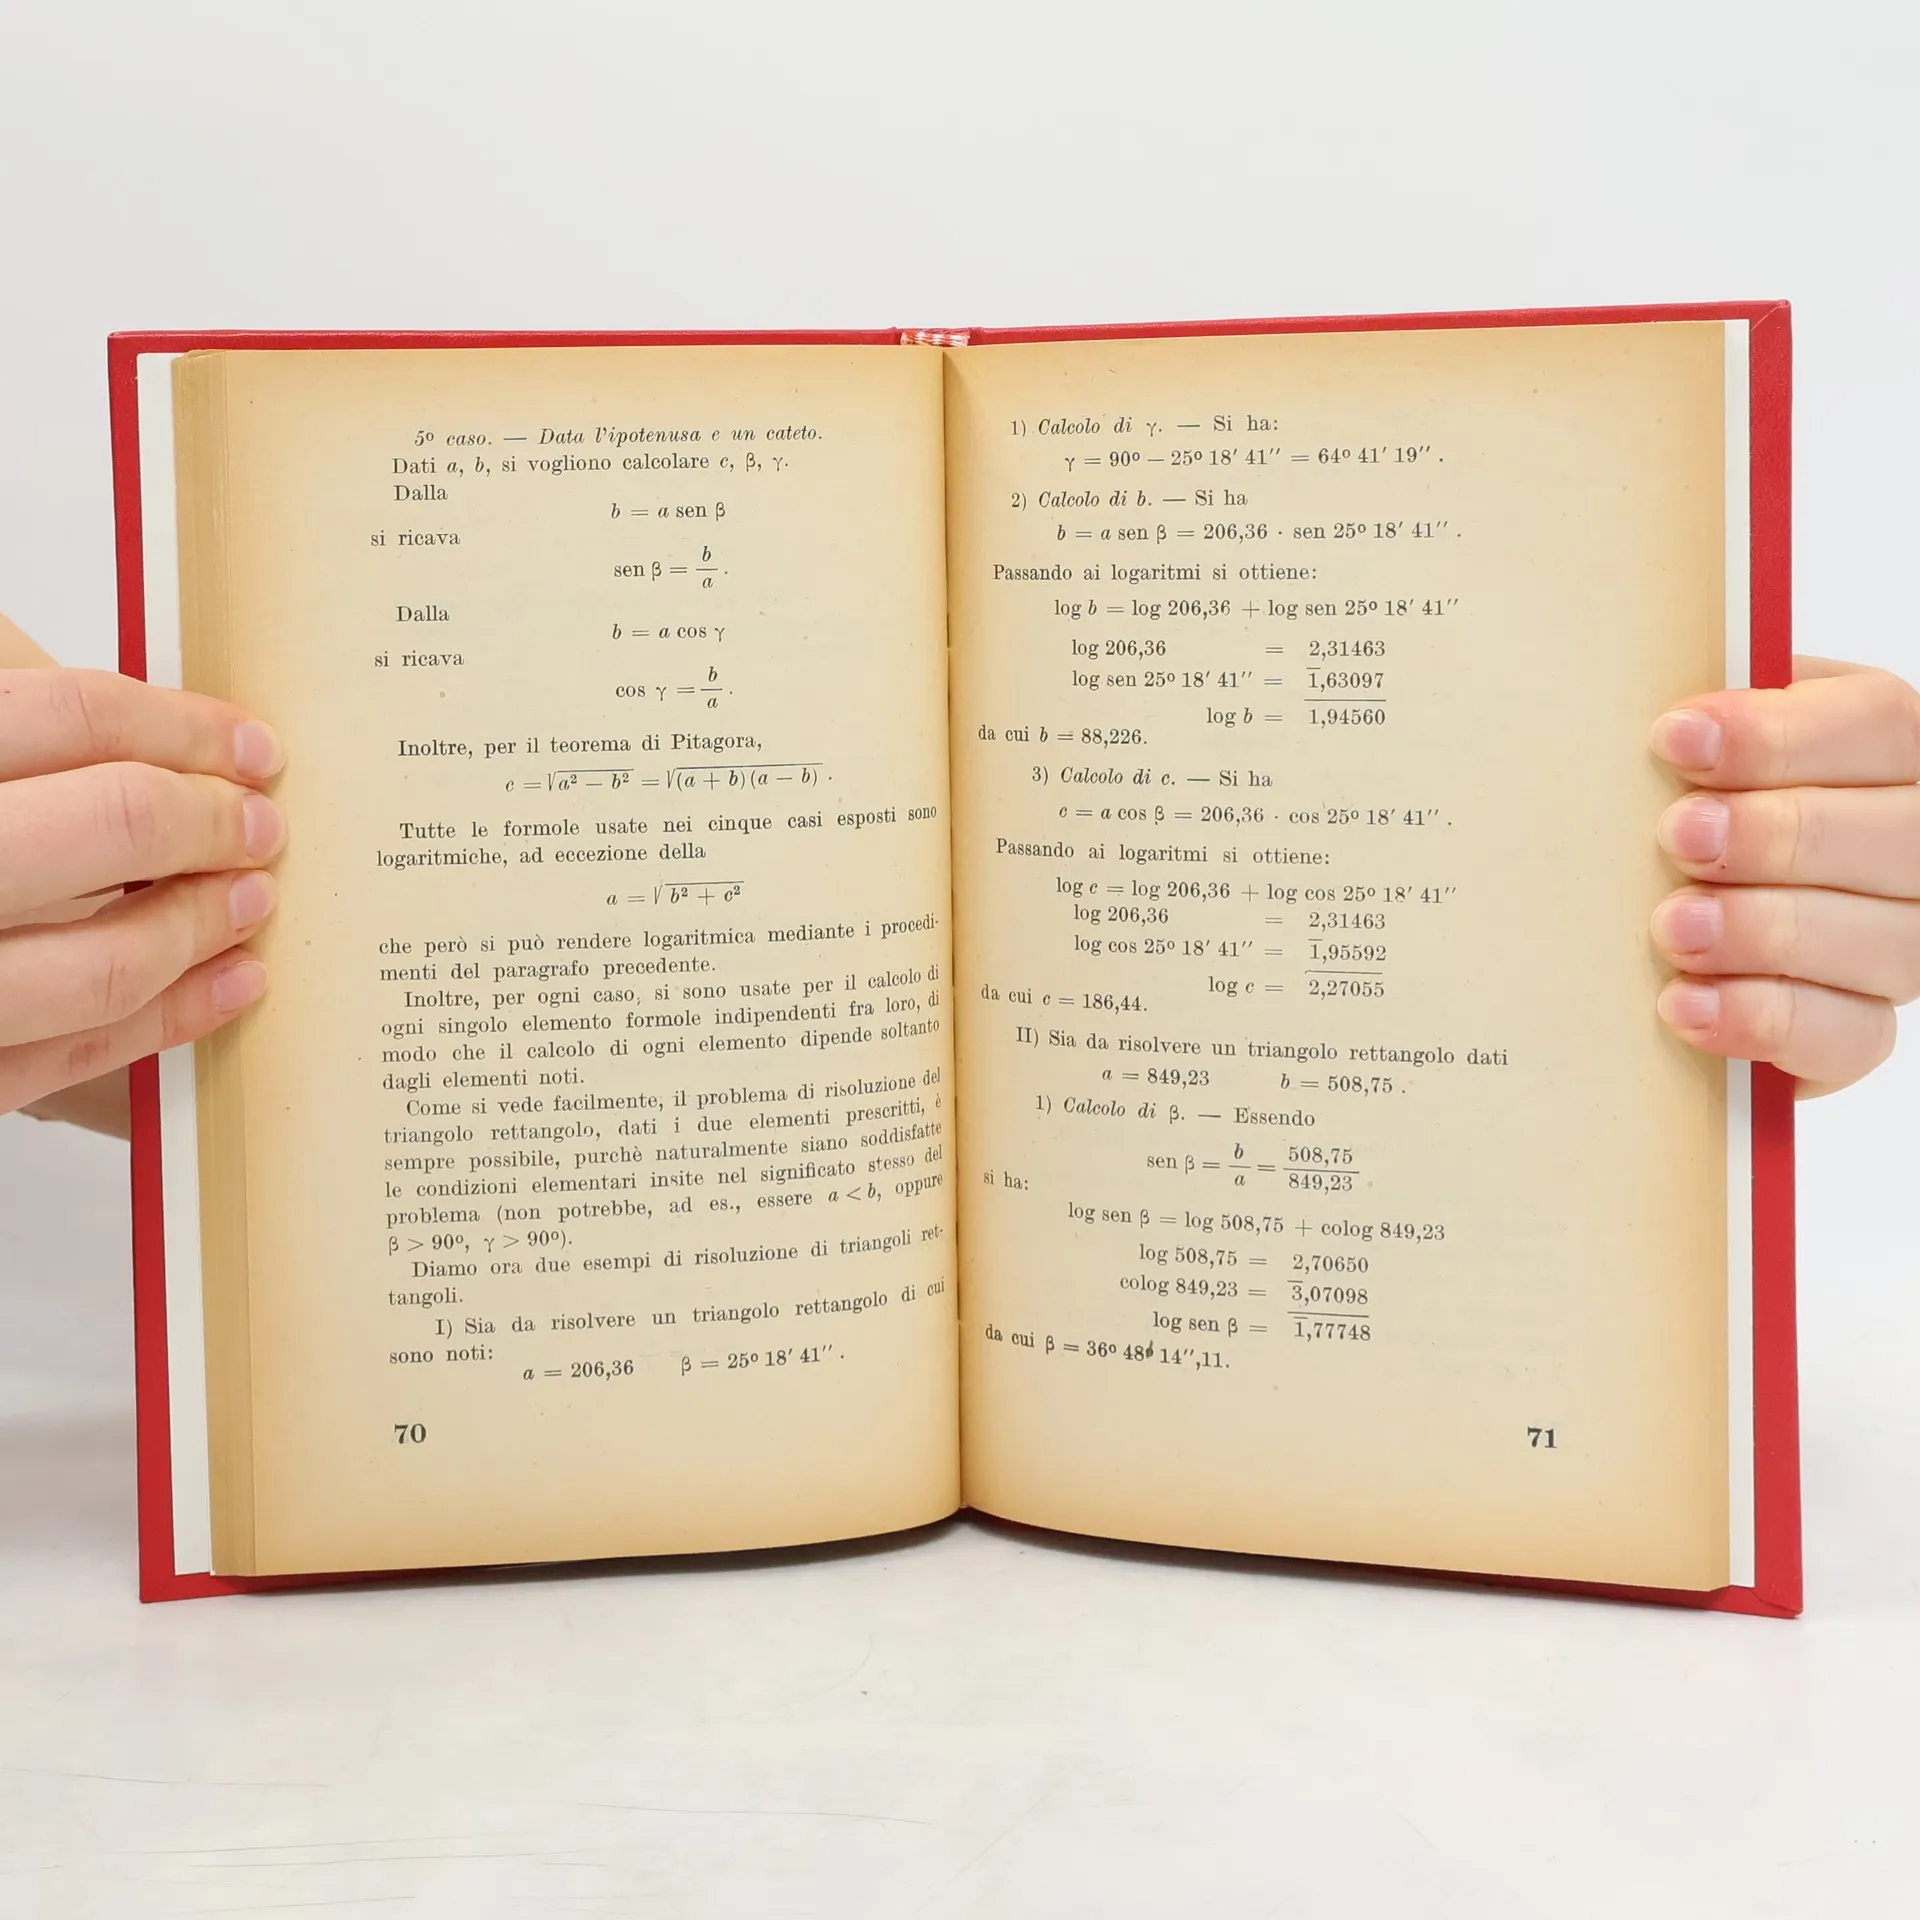 5º caso. — Data l'ipotenusa e un cateto.
Dati a, b, si vogliono calcolare c, β, γ.
Dalla
b = a sen β
si ricava
sen β = b/a .
Dalla
b = a cos γ
si ricava
cos γ = b/a .
Inoltre, per il teorema di Pitagora,
c = √(a² — b²) = √((a + b)(a — b)) .
Tutte le formole usate nei cinque casi esposti sono
logaritmiche, ad eccezione della
a = √(b² + c²)
che però si può rendere logaritmica mediante i procedi-
menti del paragrafo precedente.
Inoltre, per ogni caso, si sono usate per il calcolo di
ogni singolo elemento formole indipendenti fra loro, di
modo che il calcolo di ogni elemento dipende soltanto
dagli elementi noti.
Come si vede facilmente, il problema di risoluzione del
triangolo rettangolo, dati i due elementi prescritti, è
sempre possibile, purchè naturalmente siano soddisfatte
le condizioni elementari insite nel significato stesso del
problema (non potrebbe, ad es., essere a < b, oppure
β > 90º, γ > 90º).
Diamo ora due esempi di risoluzione di triangoli ret-
tangoli.
I) Sia da risolvere un triangolo rettangolo di cui
sono noti:
a = 206,36 β = 25º 18′ 41′′ .
70
1) Calcolo di γ. — Si ha:
γ = 90º — 25º 18′ 41′′ = 64º 41′ 19′′ .
2) Calcolo di b. — Si ha
b = a sen β = 206,36 · sen 25º 18′ 41′′ .
Passando ai logaritmi si ottiene:
log b = log 206,36 + log sen 25º 18′ 41′′
log 206,36 = 2,31463
log sen 25º 18′ 41′′ = 1̅,63097
log b = 1,94560
da cui b = 88,226.
3) Calcolo di c. — Si ha
c = a cos β = 206,36 · cos 25º 18′ 41′′ .
Passando ai logaritmi si ottiene:
log c = log 206,36 + log cos 25º 18′ 41′′
log 206,36 = 2,31463
log cos 25º 18′ 41′′ = 1̅,95592
log c = 2,27055
da cui c = 186,44.
II) Sia da risolvere un triangolo rettangolo dati
a = 849,23 b = 508,75 .
1) Calcolo di β. — Essendo
sen β = b/a = 508,75/849,23
si ha:
log sen β = log 508,75 + colog 849,23
log 508,75 = 2,70650
colog 849,23 = 3̅,07098
log sen β = 1̅,77748
da cui β = 36º 48′ 14′′,11.
71